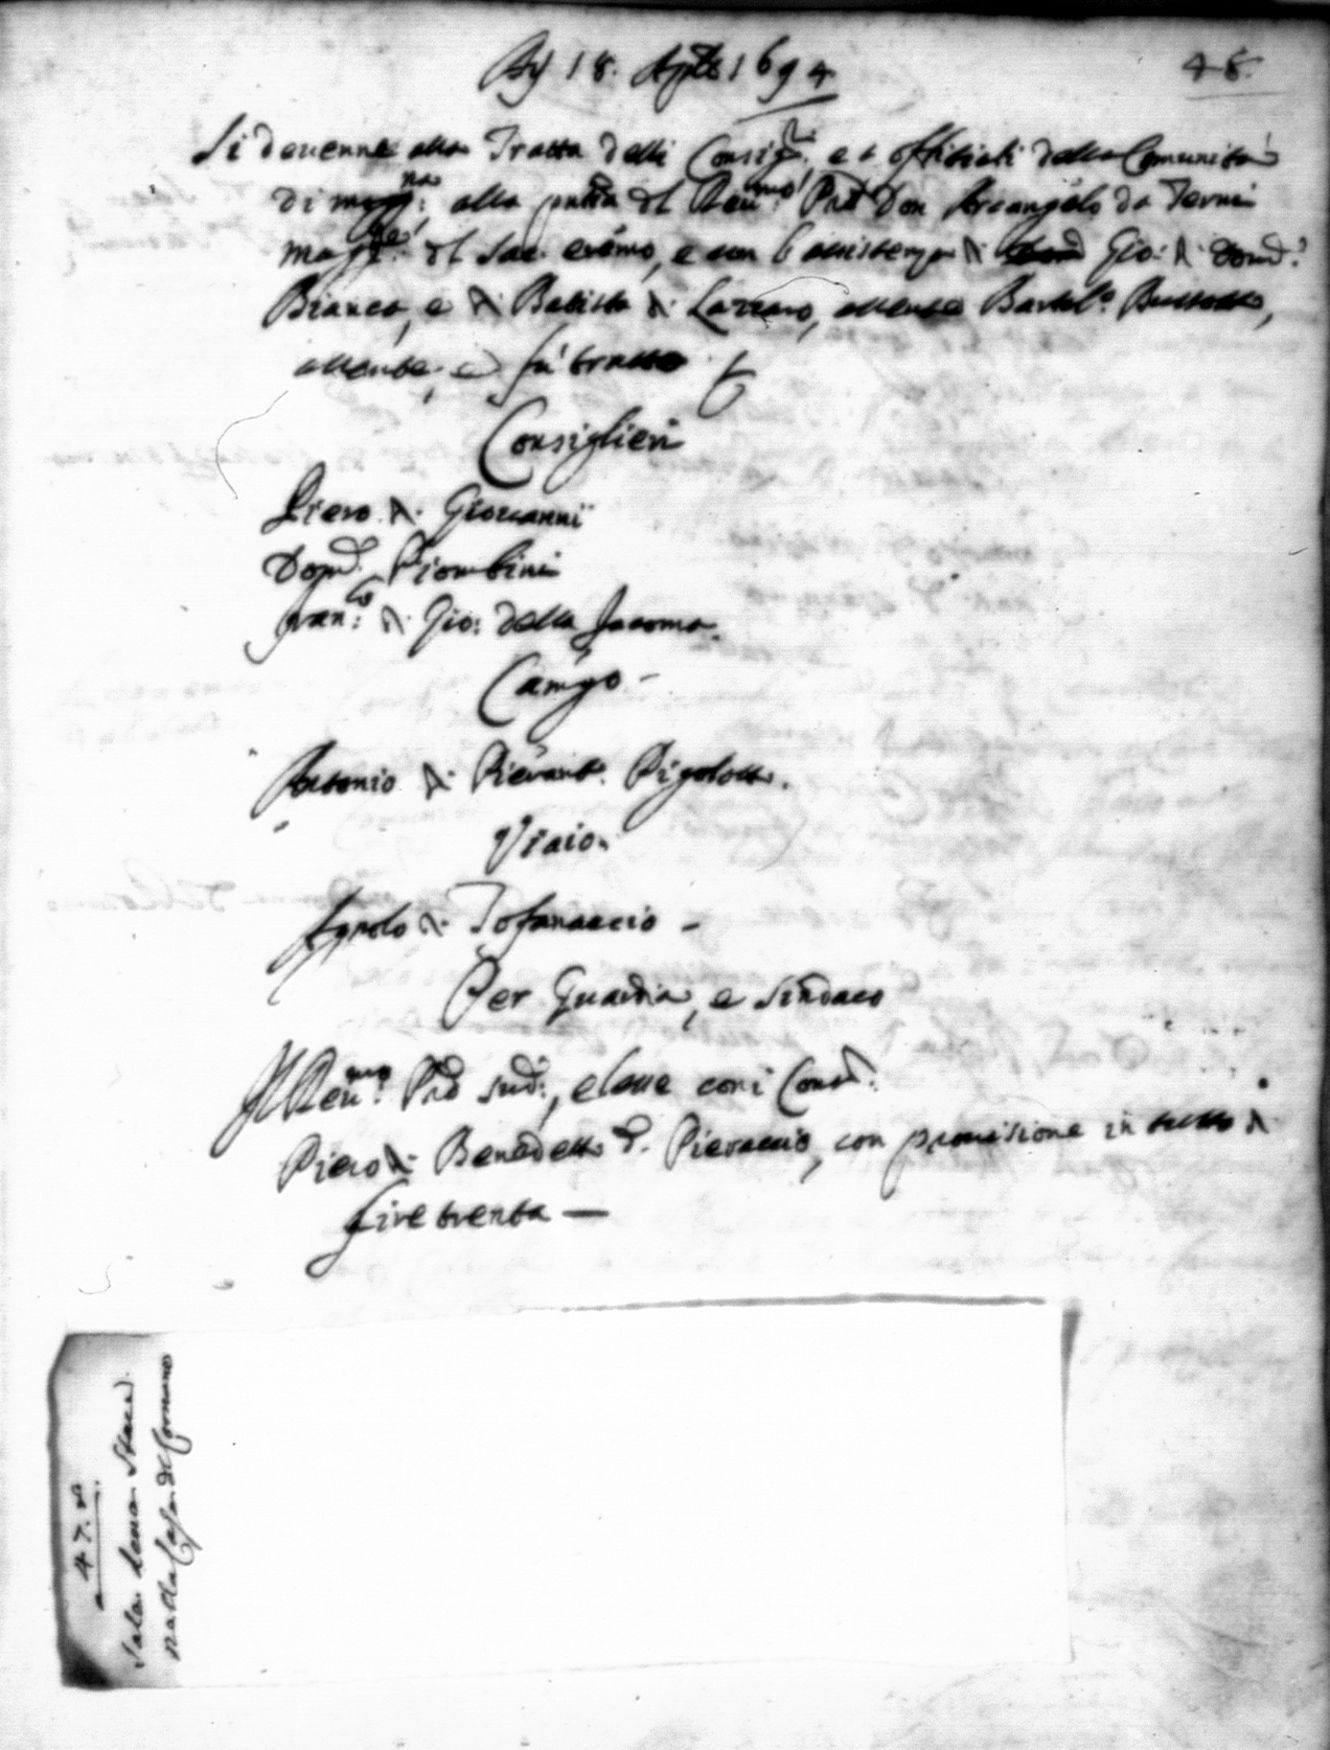 Adj 18. Aple 1694
48.
Si devenne alla Tratta delli Consig:ri et offitiali della Comunità
di mogg:na alla pñza dl Reu:mo Pad Don Arcangelo da Terni
magg:re dl Sac. eremo, e con l'assistenza di Gio: di Dom:co
Bianco, e di Batista di Lazzaro, assente Bartol:o
assente, e fù tratto
Consiglieri
Piero di Giovanni
Dom:co Piombini
Fran:co di Gio: della Jacoma
Camgo -
Antonio di Pierant: Pigolotti.
Viaio.
Agnolo di Tofanaccio -
Per Guardia, e Sindaco
Il Reu:mo Pad sud:, elesse con i Cons:
Piero di Benedetto d. Pieraccio, con provisione in tutto di
lire trenta —
a 47. 48
nella Casa di Comano